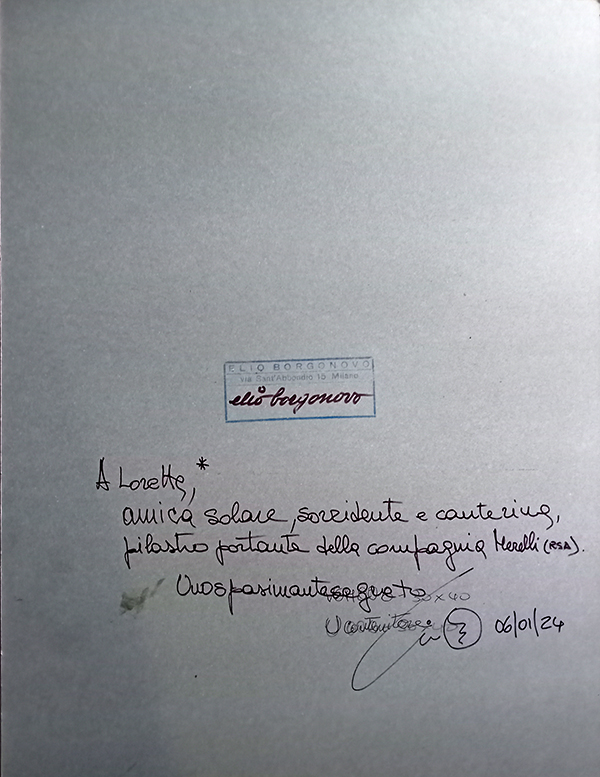 ELIO BORGONOVO
Via Sant'Abbondio 15 Milano
elio borgonovo
A Loretta,*
amica solare, sorridente e canterina,
pilastro portante della compagnia Merelli (RSA).
Uno spasimante segreto
30x40
06/01/24